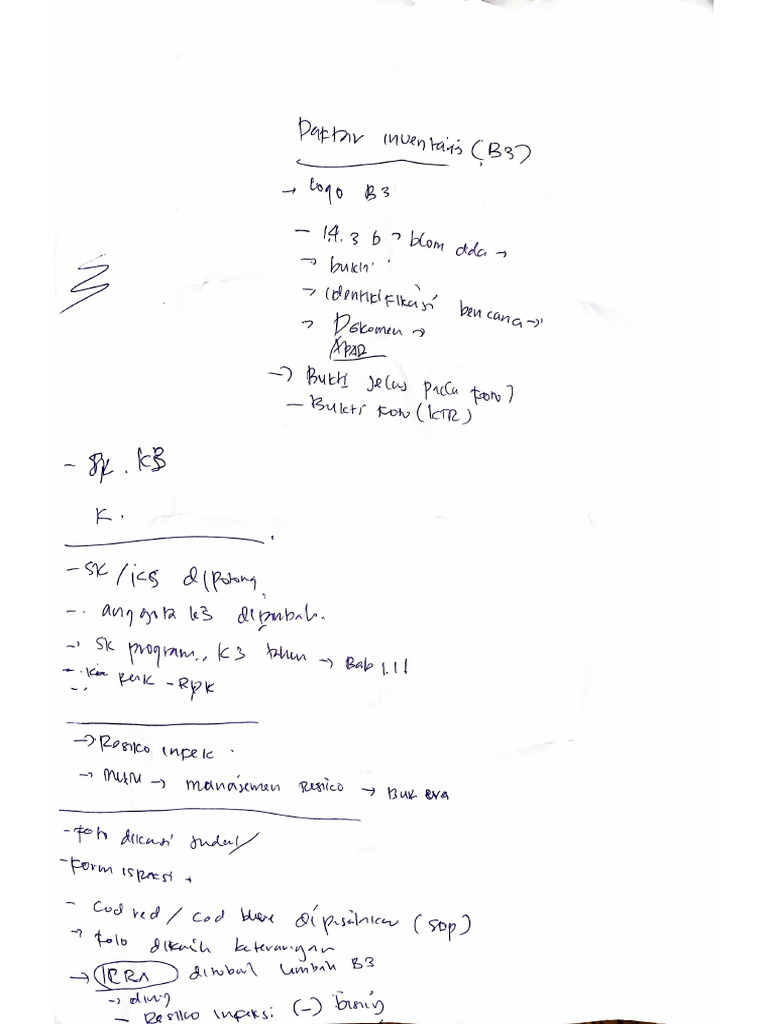 Daftar inventaris (B3)
→ Logo B3
- 1.4.3 b → blom ada →
→ bukti
→ identifikasi bencana →
→ Dokomen →
APAR
→ Bukti jelas pada foto
- Bukti foto (KTR)
- SK. K3
K.
- SK / K3 dipotong
- anggota K3 diperbah.
→ SK program K3 tahun → Bab 1.1!
- RPK
→ Resiko infek.
→ mutu → manajemen resiko → Buk eva
- foto dikasi sudul
- Form ispeksi
- Cod red / cod blue dipisahkan (SOP)
→ foto dikasih keterangan
→ ICRA ditobal limbah B3
→
- Resiko infeksi (-) bising